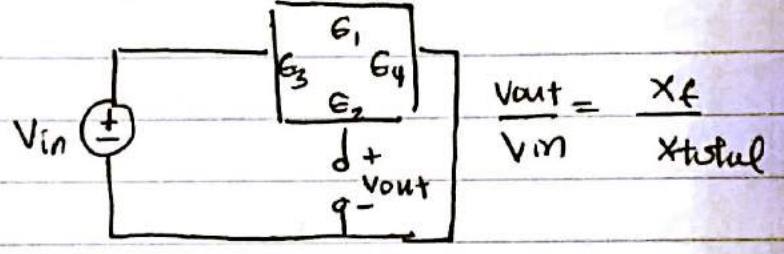 ϵ₁
ϵ₃ ϵ₄
ϵ₂
Vin + −
+
Vout
−
Vout/Vin = xf/xtotal